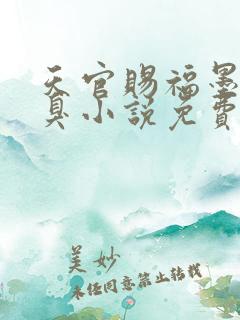 天官赐福墨
臭小说免费
美妙
未经同意禁止转载